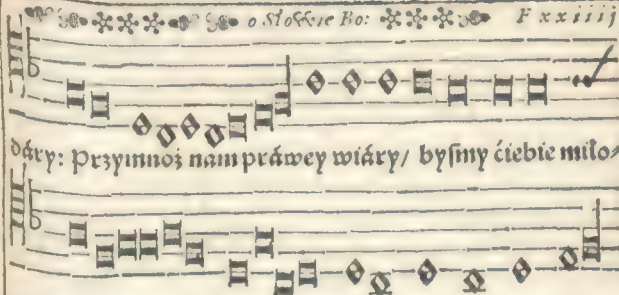 o Słowie Bo: F xxiiij
dáry: Przymnoż nam práwey wiáry/ bysmy ćiebie miło⸗